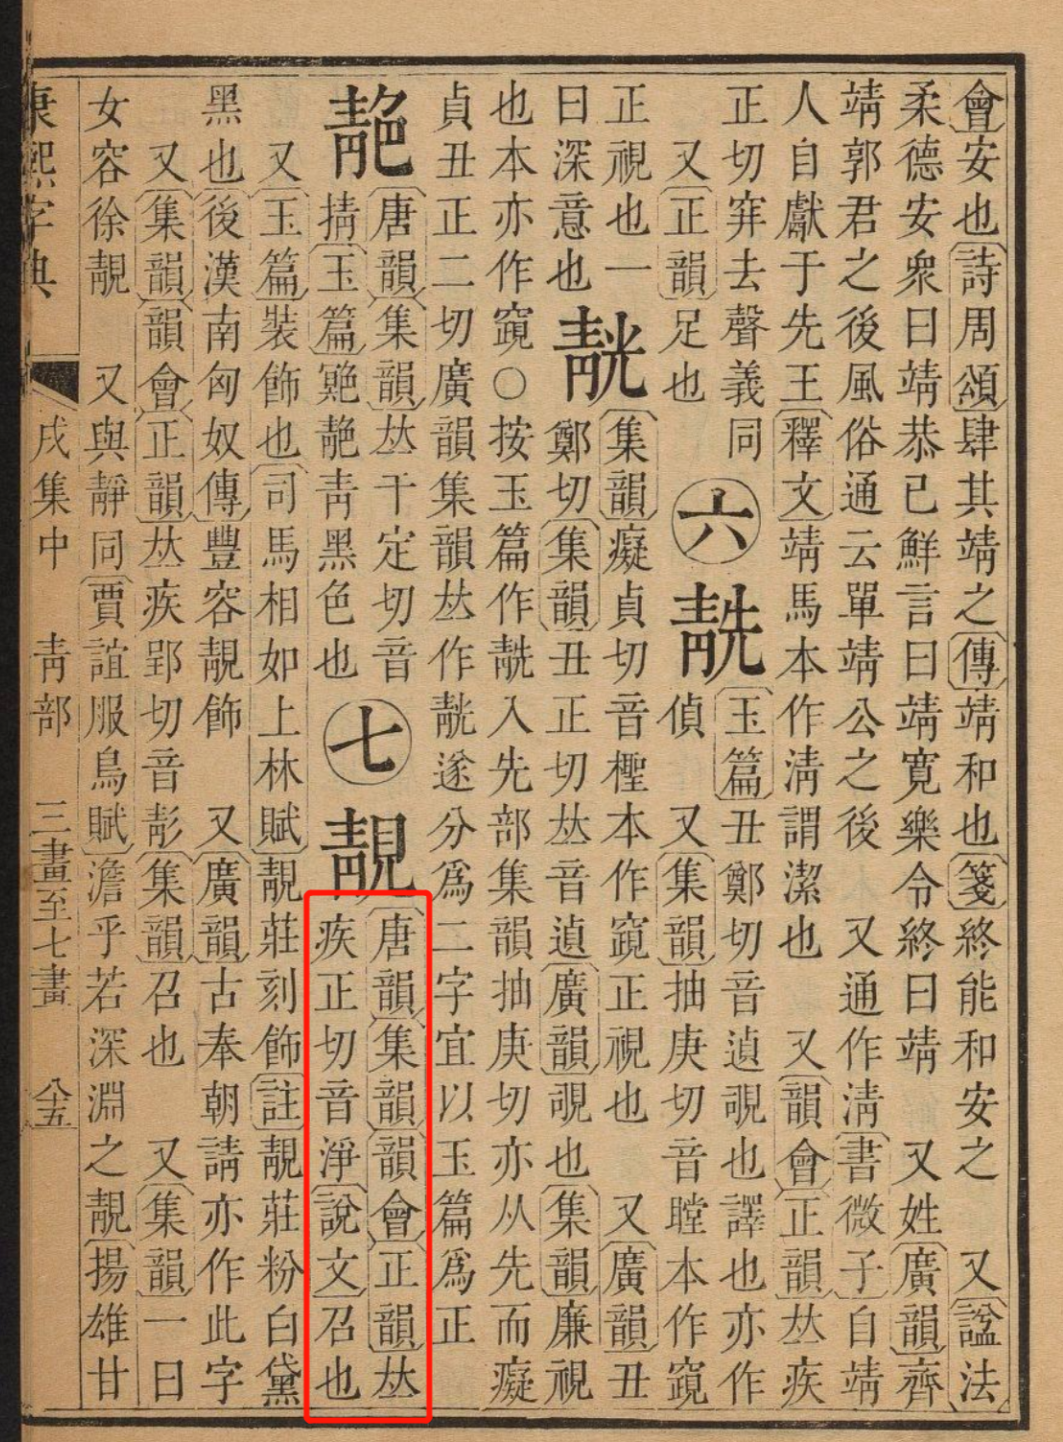 會安也詩周頌肆其靖之傳靖和也箋終能和安之 又諡法
柔德安衆曰靖恭己鮮言曰靖寬樂令終曰靖 又姓廣韻齊
靖郭君之後風俗通云單靖公之後 又通作淸書微子自靖
人自獻于先王釋文靖馬本作淸謂潔也 又韻會正韻𠀤疾
正切穽去聲義同
又正韻足也
六
靗
玉篇丑鄭切音遉覗也譯也亦作
偵 又集韻抽庚切音瞠本作䆸
正視也一
曰深意也
集韻癡貞切音檉本作䆸正視也 又廣韻丑
鄭切集韻丑正切𠀤音遉廣韻覗也集韻廉視
也本亦作䆸○按玉篇作靗入先部集韻抽庚切亦从先而癡
貞丑正二切廣韻集韻𠀤作遂分爲二字宜以玉篇爲正
靘
唐韻集韻𠀤千定切音
掅玉篇靘靑黑色也
七
靚
唐韻集韻韻會正韻𠀤
疾正切音淨說文召也
又玉篇裝飾也司馬相如上林賦靚莊刻飾註靚莊粉白黛
黑也後漢南匈奴傳豐容靚飾 又廣韻古奉朝請亦作此字
又集韻韻會正韻𠀤疾郢切音集韻召也 又集韻一曰
女容徐靚 又與靜同賈誼服鳥賦澹乎若深淵之靚揚雄甘
康熙字典 戌集中 靑部 三畫至七畫